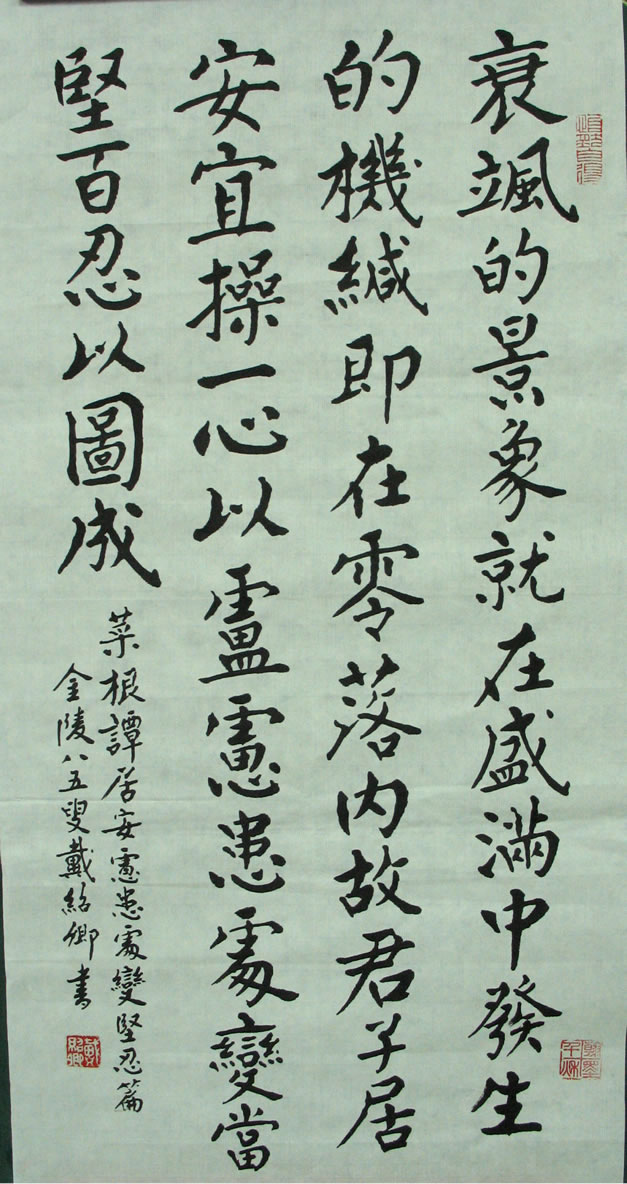 衰颯的景象就在盛滿中發生
的機緘即在零落內故君子居
安宜操一心以盧慮患處變當
堅百忍以圖成
菜根譚居安慮患處變堅忍篇
金陵八五叟戴紹卿書
戴紹卿